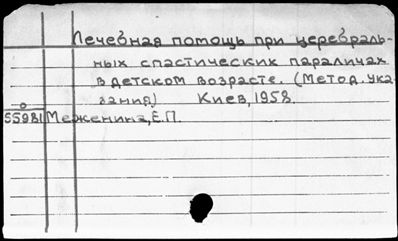 Лечебная помощь при церебраль-
ных спастических параличах
в детском возрасте. (Метод. ука-
зания) Киев, 1958.
55981 Меженина, Е.П.